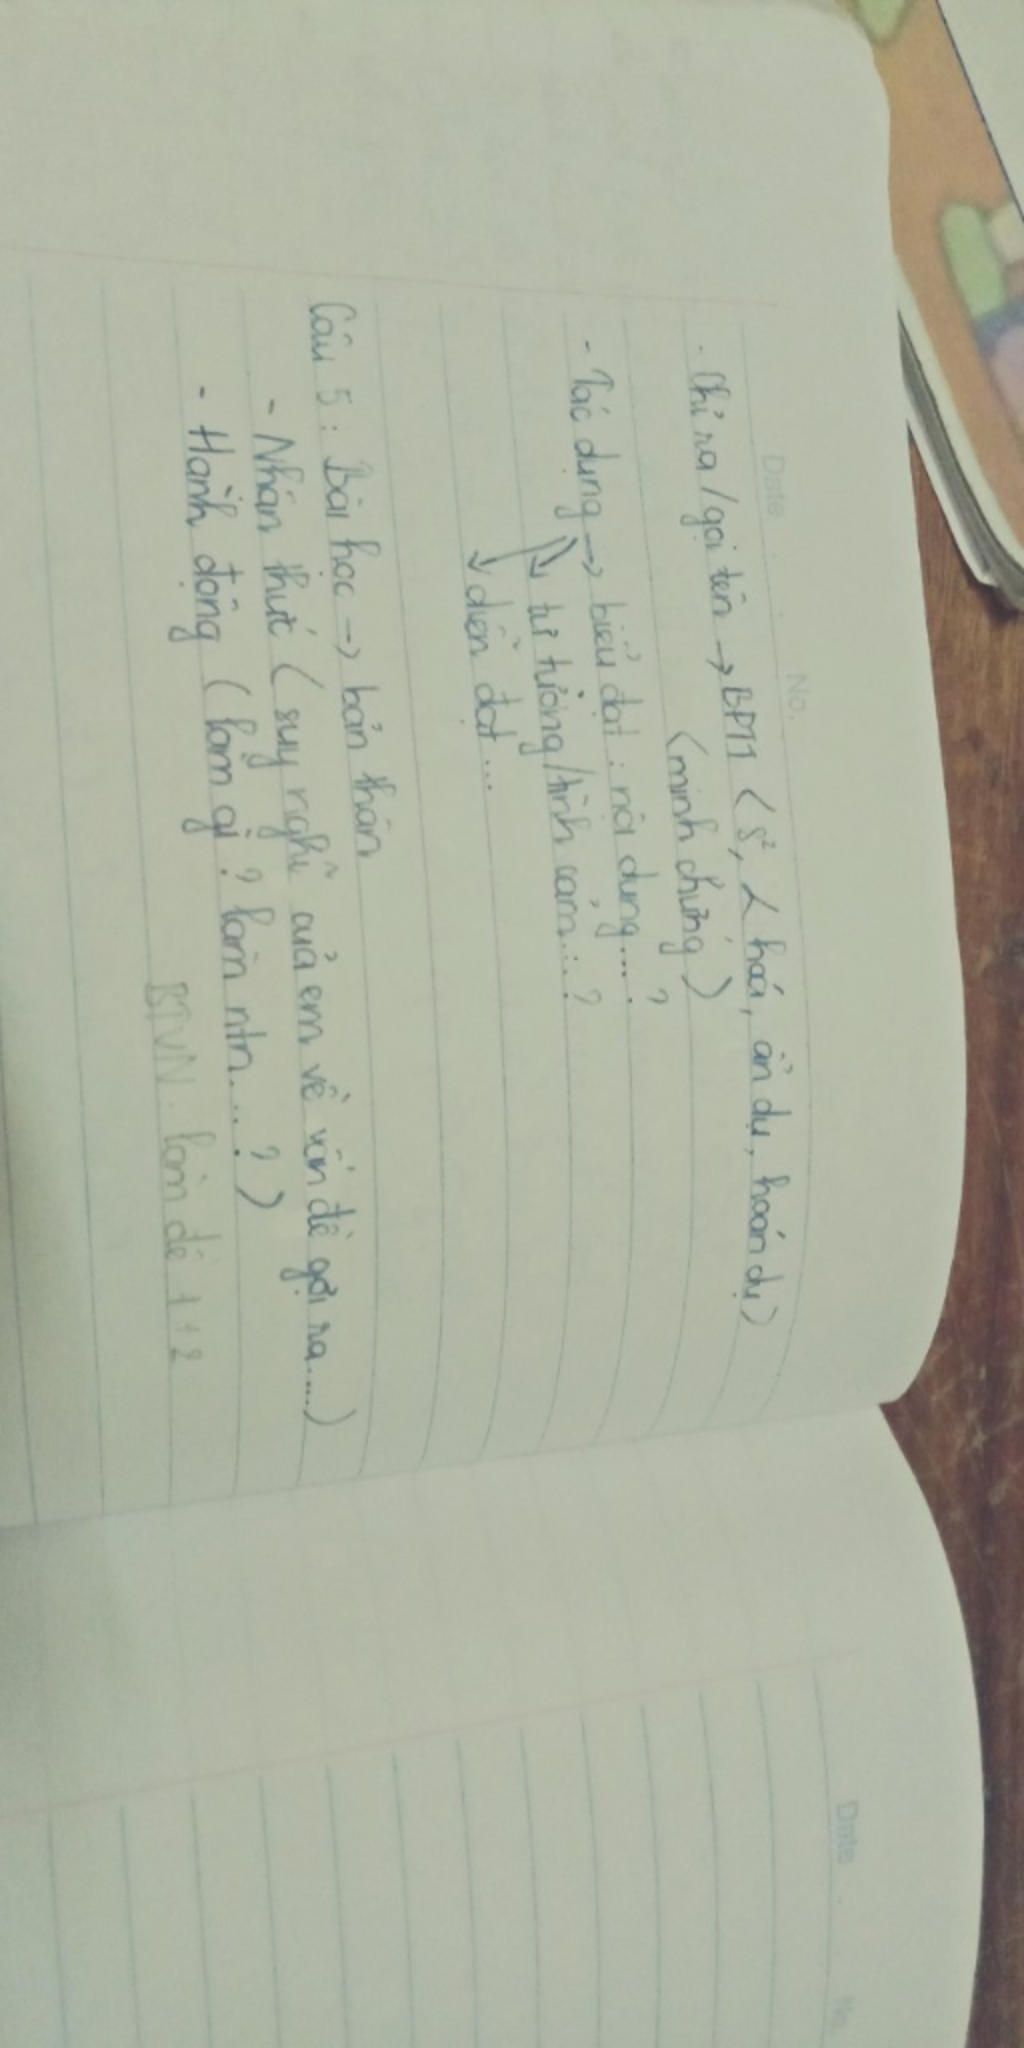 Date No.
- Chỉ ra/gọi tên → BPTT (s², < hoá, ẩn dụ, hoán dụ)
(minh chứng)
- Tác dụng → biểu đạt: nội dung....?
↘ tư tưởng/tình cảm....?
↘ diễn đạt...
Câu 5: Bài học → bản thân
- Nhận thức (suy nghĩ của em về vấn đề gợi ra....)
- Hành động (làm gì? làm ntn....?)
BTVN: làm đề 1+2
Date No.